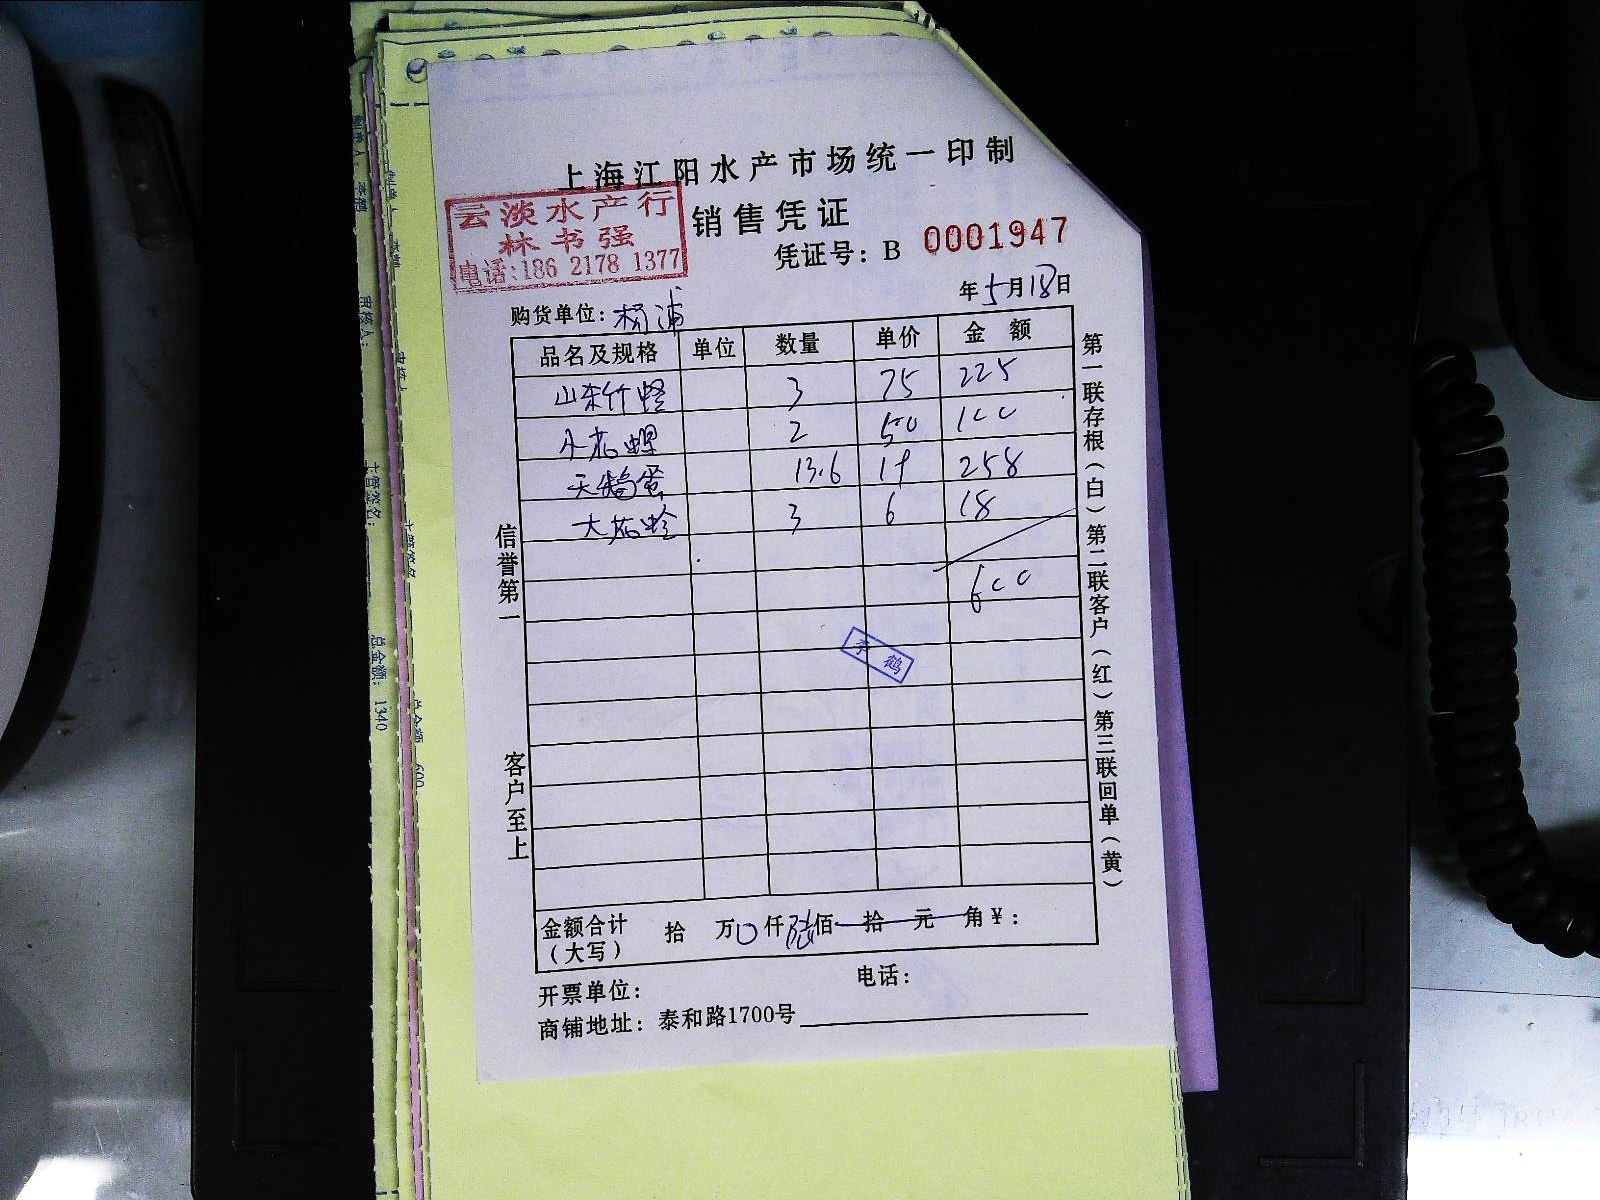 上海江阳水产市场统一印制
云淡水产行
林书强
电话:186 2178 1377
销售凭证
凭证号：B 0001947
年5月18日
购货单位：杨浦
品名及规格 单位 数量 单价 金额
山东竹蛏 3 75 225
小花螺 2 50 100
天鹅蛋 13.6 19 258
大花蛤 3 6 18
600
李鹤
信誉第一
客户至上
第一联存根（白）第二联客户（红）第三联回单（黄）
金额合计（大写） 拾 万0仟陆佰拾元角￥：
开票单位： 电话：
商铺地址：泰和路1700号
总金额：1340